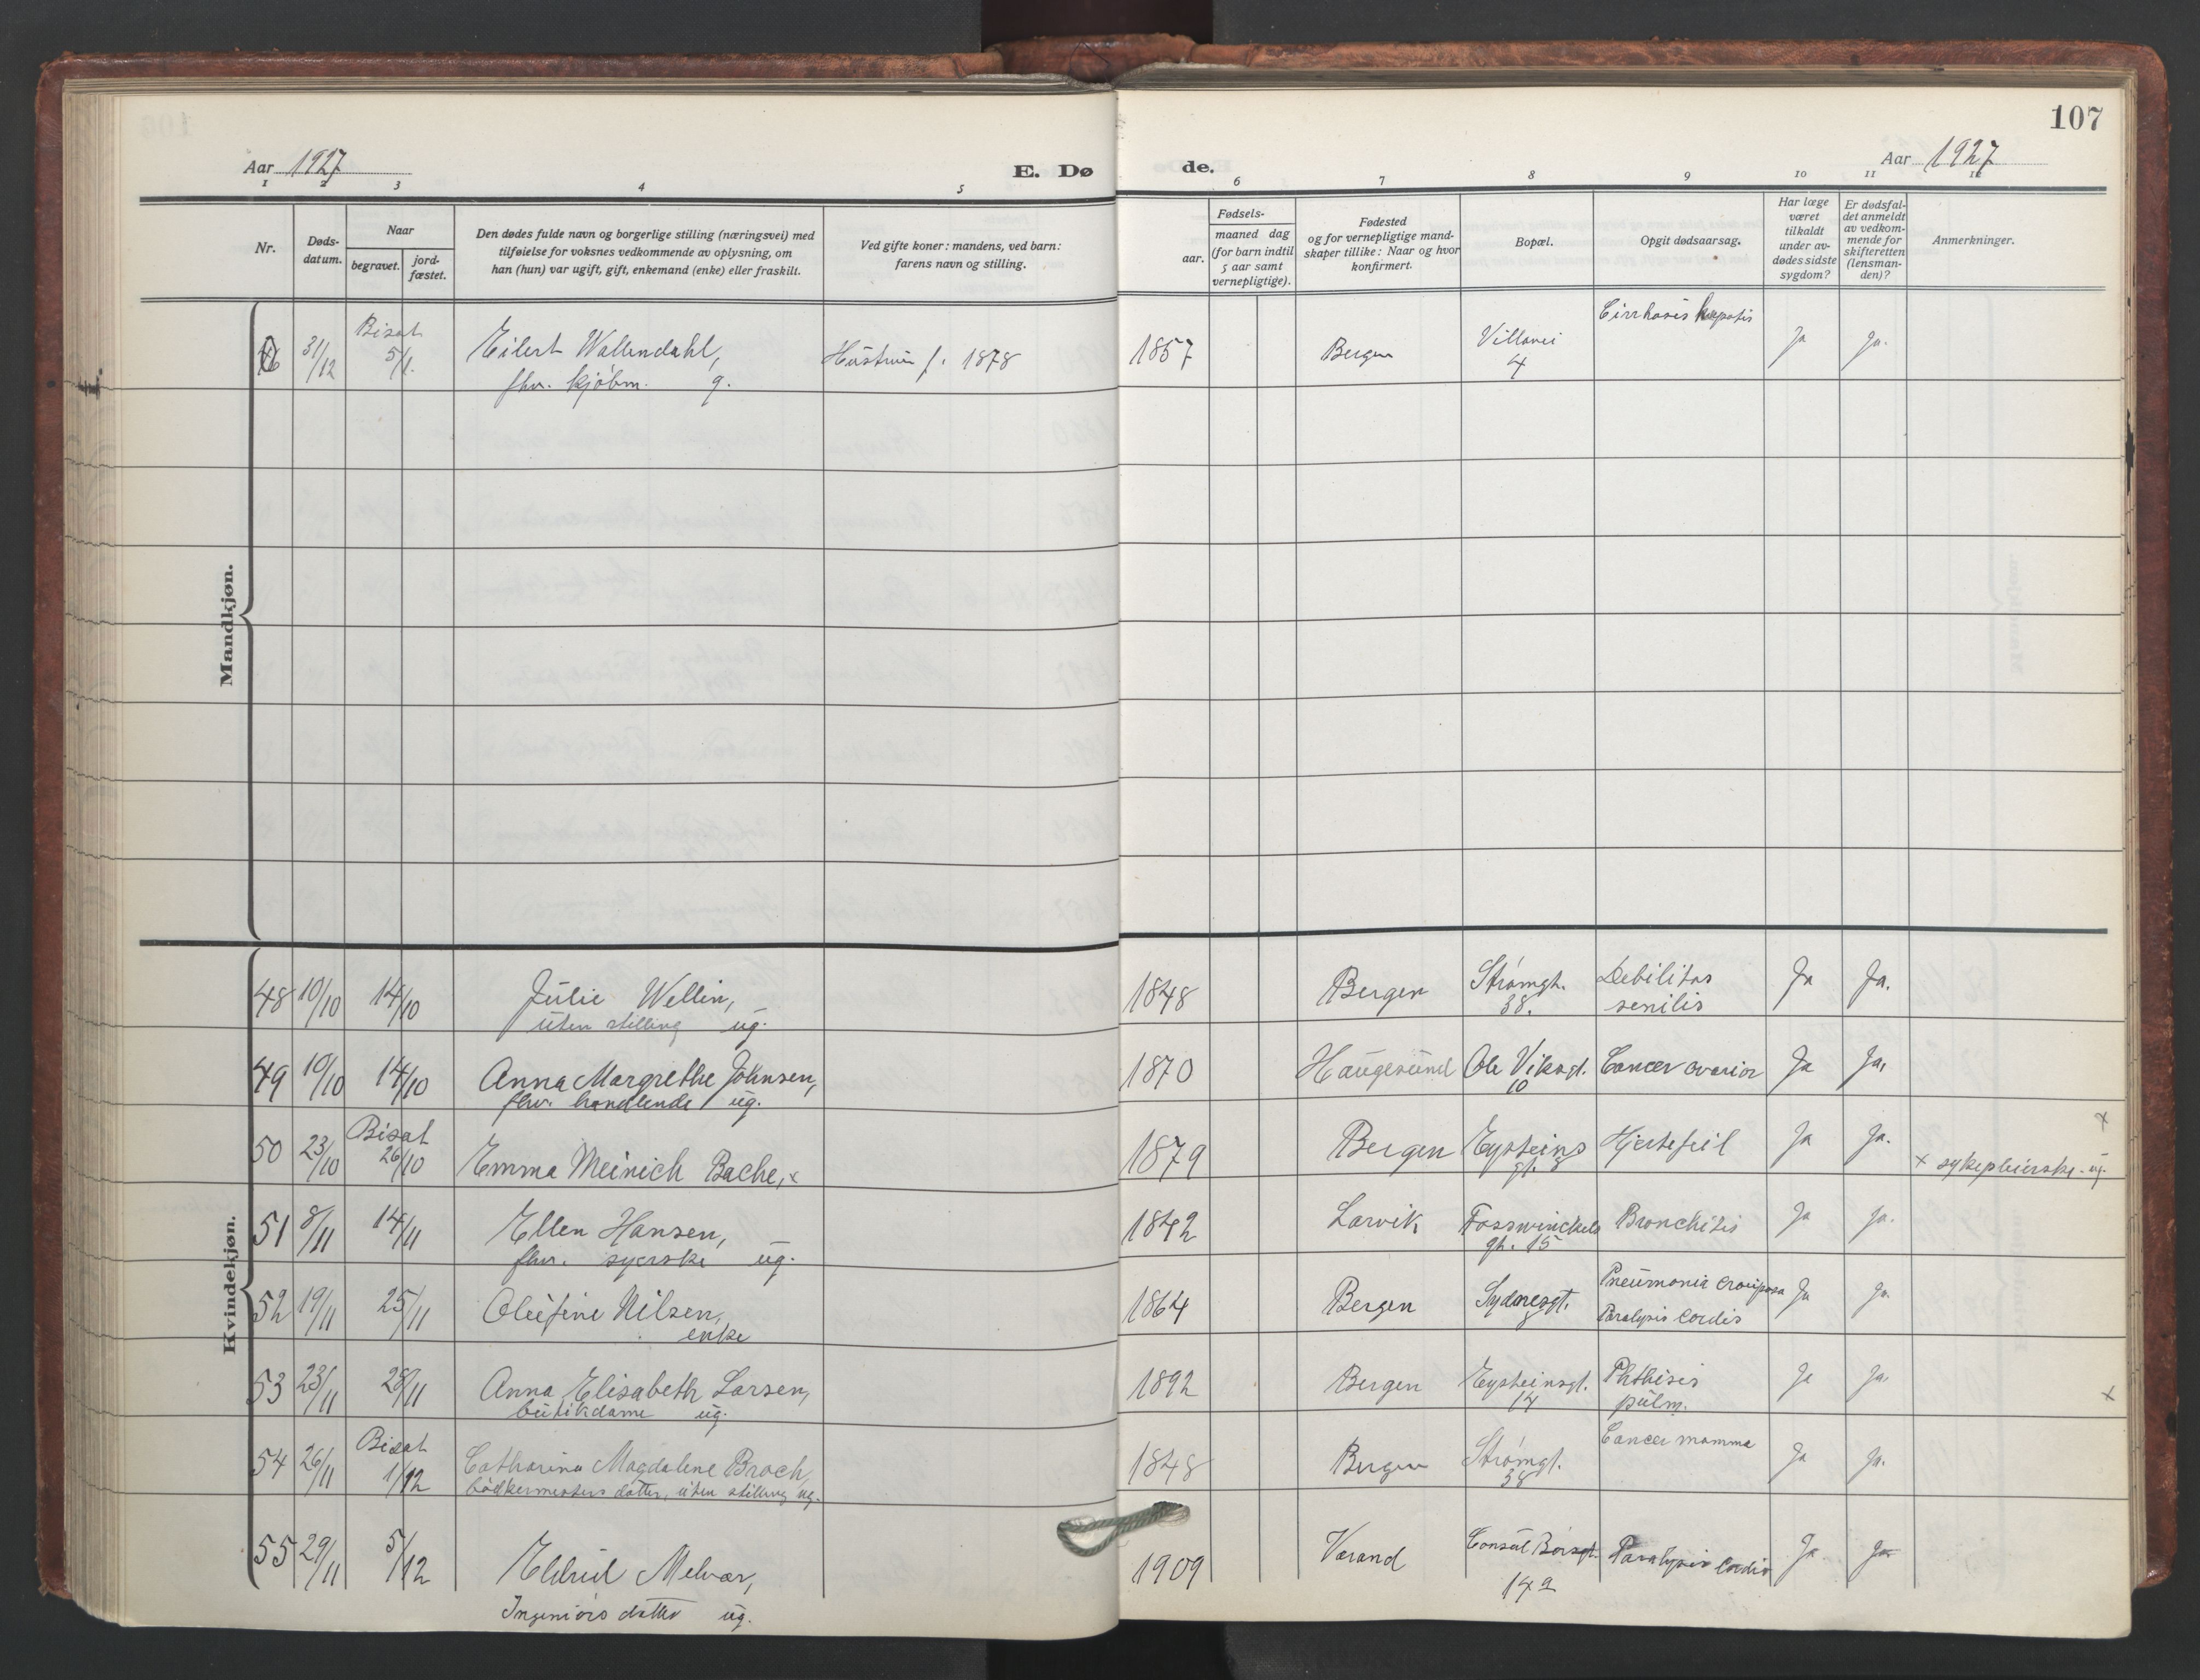 107
Aar 1927
E. Dø
de.
Aar 1927
1 2 3 4 5 6 7 8 9 10 11 12
Nr.
Døds-
datum.
Naar
begravet.
jord-
fæstet.
Den dødes fulde navn og borgerlige stilling (næringsvei) med
tilføielse for voksnes vedkommende av oplysning, om
han (hun) var ugift, gift, enkemand (enke) eller fraskilt.
Ved gifte koner: mandens, ved barn:
farens navn og stilling.
Fødsels-
aar.
maaned dag
(for barn indtil
5 aar samt
vernepligtige).
Fødested
og for vernepligtige mand-
skaper tillike: Naar og hvor
konfirmert.
Bopæl.
Opgit dødsaarsag.
Har læge
været
tilkaldt
under av-
dødes sidste
sygdom?
Er dødsfal-
det anmeldt
av vedkom-
mende for
skifteretten
(lensman-
den)?
Anmerkninger.
Mandkjøn.
31/12 Bisat 5/1. Eilert Wallendahl, Hustrue f. 1878 1857 Bergen Villavei 4 Cirrhosis hepatis Ja Ja.
fhv. kjøbm. g.
Kvindekjøn.
48 10/10 14/10 Julie Wellin, 1848 Bergen Strømgt. 38. Debilitas senilis Ja Ja.
uten stilling ug.
49 10/10 14/10 Anna Margrethe Johnsen, 1870 Haugesund Ole Viksgt. 10 Cancer ovarior Ja Ja.
fhv. handlende ug.
50 23/10 Bisat 26/10 Emma Meinich Bache, x 1879 Bergen Eysteins gt. 8 Hjertefeil Ja Ja. x sykepleierske. ug.
51 8/11 14/11 Ellen Hansen, 1842 Larvik Fosswinckels gt. 15 Bronchitis Ja Ja.
fhv. syerske ug.
52 19/11 25/11 Olufine Nilsen, 1864 Bergen Sydnesgt. 8 Pneumonia crouposa Ja Ja
enke Paralysis cordis
53 23/11 28/11 Anna Elisabeth Larsen, 1892 Bergen Eysteinsgt. 14 Phthisis pulm. Ja Ja. x
butikdame ug.
54 26/11 Bisat 1/12 Catharina Magdalene Broch, 1848 Bergen Strømgt. 38 Cancer mamma Ja Ja.
bødkermesters datter, uten stilling ug.
55 29/11 5/12 Eldrid Melvær, 1909 Varand Consul Børsgt. Paralysis cordis Ja Ja
Ingeniørs datter ug.